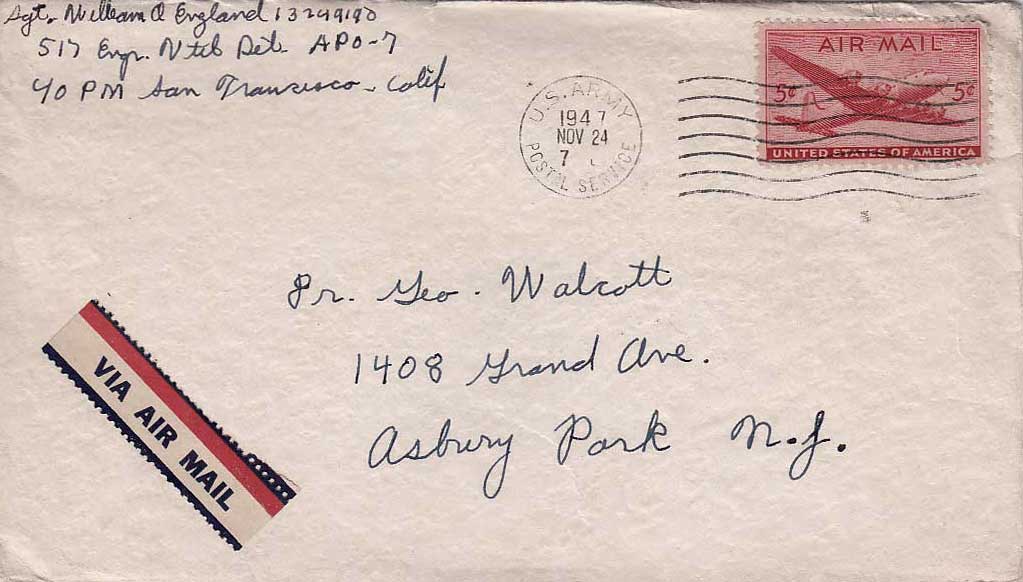 Sgt. William A England 13249190
517 Engr. Util Det. APO-7
℅ PM San Francisco - Calif
U.S. ARMY
1947
NOV 24
7
POSTAL SERVICE
AIR MAIL
5¢ 5¢
UNITED STATES OF AMERICA
Geo. Walcott
1408 Grand Ave.
Asbury Park N.J.
VIA AIR MAIL